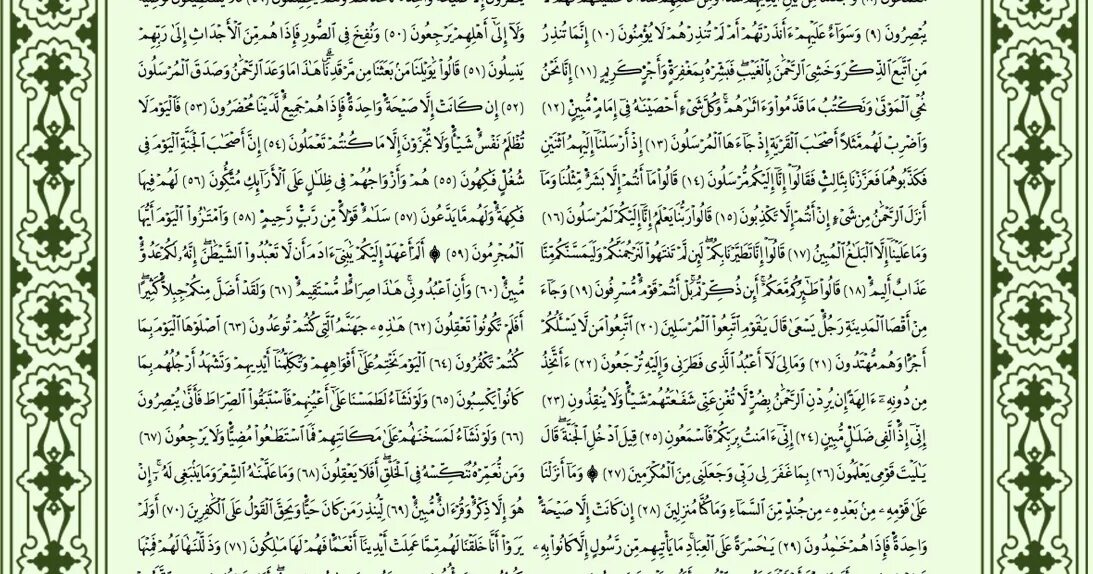 يُبْصِرُونَ (٩) وَسَوَآءٌ عَلَيْهِمْ ءَأَنذَرْتَهُمْ أَمْ لَمْ تُنذِرْهُمْ لَا يُؤْمِنُونَ (١٠) إِنَّمَا تُنذِرُ
مَنِ ٱتَّبَعَ ٱلذِّكْرَ وَخَشِيَ ٱلرَّحْمَٰنَ بِٱلْغَيْبِۖ فَبَشِّرْهُ بِمَغْفِرَةٍ وَأَجْرٍ كَرِيمٍ (١١) إِنَّا نَحْنُ
نُحْيِ ٱلْمَوْتَىٰ وَنَكْتُبُ مَا قَدَّمُوا۟ وَءَاثَٰرَهُمْۚ وَكُلَّ شَيْءٍ أَحْصَيْنَٰهُ فِيٓ إِمَامٍ مُّبِينٍ (١٢)
وَٱضْرِبْ لَهُم مَّثَلًا أَصْحَٰبَ ٱلْقَرْيَةِ إِذْ جَآءَهَا ٱلْمُرْسَلُونَ (١٣) إِذْ أَرْسَلْنَآ إِلَيْهِمُ ٱثْنَيْنِ
فَكَذَّبُوهُمَا فَعَزَّزْنَا بِثَالِثٍ فَقَالُوٓا۟ إِنَّآ إِلَيْكُم مُّرْسَلُونَ (١٤) قَالُوا۟ مَآ أَنتُمْ إِلَّا بَشَرٌ مِّثْلُنَا وَمَآ
أَنزَلَ ٱلرَّحْمَٰنُ مِن شَيْءٍ إِنْ أَنتُمْ إِلَّا تَكْذِبُونَ (١٥) قَالُوا۟ رَبُّنَا يَعْلَمُ إِنَّآ إِلَيْكُمْ لَمُرْسَلُونَ (١٦)
وَمَا عَلَيْنَآ إِلَّا ٱلْبَلَٰغُ ٱلْمُبِينُ (١٧) قَالُوٓا۟ إِنَّا تَطَيَّرْنَا بِكُمْۖ لَئِن لَّمْ تَنتَهُوا۟ لَنَرْجُمَنَّكُمْ وَلَيَمَسَّنَّكُم مِّنَّا
عَذَابٌ أَلِيمٌ (١٨) قَالُوا۟ طَٰٓئِرُكُم مَّعَكُمْۚ أَئِن ذُكِّرْتُمۚ بَلْ أَنتُمْ قَوْمٌ مُّسْرِفُونَ (١٩) وَجَآءَ
مِنْ أَقْصَا ٱلْمَدِينَةِ رَجُلٌ يَسْعَىٰ قَالَ يَٰقَوْمِ ٱتَّبِعُوا۟ ٱلْمُرْسَلِينَ (٢٠) ٱتَّبِعُوا۟ مَن لَّا يَسْـَٔلُكُمْ
أَجْرًا وَهُم مُّهْتَدُونَ (٢١) وَمَا لِيَ لَآ أَعْبُدُ ٱلَّذِي فَطَرَنِي وَإِلَيْهِ تُرْجَعُونَ (٢٢) ءَأَتَّخِذُ
مِن دُونِهِۦٓ ءَالِهَةً إِن يُرِدْنِ ٱلرَّحْمَٰنُ بِضُرٍّ لَّا تُغْنِ عَنِّي شَفَٰعَتُهُمْ شَيْـًٔا وَلَا يُنقِذُونِ (٢٣)
إِنِّيٓ إِذًا لَّفِي ضَلَٰلٍ مُّبِينٍ (٢٤) إِنِّيٓ ءَامَنتُ بِرَبِّكُمْ فَٱسْمَعُونِ (٢٥) قِيلَ ٱدْخُلِ ٱلْجَنَّةَۖ قَالَ
يَٰلَيْتَ قَوْمِي يَعْلَمُونَ (٢٦) بِمَا غَفَرَ لِي رَبِّي وَجَعَلَنِي مِنَ ٱلْمُكْرَمِينَ (٢٧) ۞ وَمَآ أَنزَلْنَا
عَلَىٰ قَوْمِهِۦ مِنۢ بَعْدِهِۦ مِن جُندٍ مِّنَ ٱلسَّمَآءِ وَمَا كُنَّا مُنزِلِينَ (٢٨) إِن كَانَتْ إِلَّا صَيْحَةً
وَٰحِدَةً فَإِذَا هُمْ خَٰمِدُونَ (٢٩) يَٰحَسْرَةً عَلَى ٱلْعِبَادِۚ مَا يَأْتِيهِم مِّن رَّسُولٍ إِلَّا كَانُوا۟ بِهِۦ
وَلَآ إِلَىٰٓ أَهْلِهِمْ يَرْجِعُونَ (٥٠) وَنُفِخَ فِي ٱلصُّورِ فَإِذَا هُم مِّنَ ٱلْأَجْدَاثِ إِلَىٰ رَبِّهِمْ
يَنسِلُونَ (٥١) قَالُوا۟ يَٰوَيْلَنَا مَنۢ بَعَثَنَا مِن مَّرْقَدِنَاۗ هَٰذَا مَا وَعَدَ ٱلرَّحْمَٰنُ وَصَدَقَ ٱلْمُرْسَلُونَ
(٥٢) إِن كَانَتْ إِلَّا صَيْحَةً وَٰحِدَةً فَإِذَا هُمْ جَمِيعٌ لَّدَيْنَا مُحْضَرُونَ (٥٣) فَٱلْيَوْمَ لَا
تُظْلَمُ نَفْسٌ شَيْـًٔا وَلَا تُجْزَوْنَ إِلَّا مَا كُنتُمْ تَعْمَلُونَ (٥٤) إِنَّ أَصْحَٰبَ ٱلْجَنَّةِ ٱلْيَوْمَ فِي
شُغُلٍ فَٰكِهُونَ (٥٥) هُمْ وَأَزْوَٰجُهُمْ فِي ظِلَٰلٍ عَلَى ٱلْأَرَآئِكِ مُتَّكِـُٔونَ (٥٦) لَهُمْ فِيهَا
فَٰكِهَةٌ وَلَهُم مَّا يَدَّعُونَ (٥٧) سَلَٰمٌ قَوْلًا مِّن رَّبٍّ رَّحِيمٍ (٥٨) وَٱمْتَٰزُوا۟ ٱلْيَوْمَ أَيُّهَا
ٱلْمُجْرِمُونَ (٥٩) ۞ أَلَمْ أَعْهَدْ إِلَيْكُمْ يَٰبَنِيٓ ءَادَمَ أَن لَّا تَعْبُدُوا۟ ٱلشَّيْطَٰنَۖ إِنَّهُۥ لَكُمْ عَدُوٌّ
مُّبِينٌ (٦٠) وَأَنِ ٱعْبُدُونِيۚ هَٰذَا صِرَٰطٌ مُّسْتَقِيمٌ (٦١) وَلَقَدْ أَضَلَّ مِنكُمْ جِبِلًّا كَثِيرًاۖ
أَفَلَمْ تَكُونُوا۟ تَعْقِلُونَ (٦٢) هَٰذِهِۦ جَهَنَّمُ ٱلَّتِي كُنتُمْ تُوعَدُونَ (٦٣) ٱصْلَوْهَا ٱلْيَوْمَ بِمَا
كُنتُمْ تَكْفُرُونَ (٦٤) ٱلْيَوْمَ نَخْتِمُ عَلَىٰٓ أَفْوَٰهِهِمْ وَتُكَلِّمُنَآ أَيْدِيهِمْ وَتَشْهَدُ أَرْجُلُهُم بِمَا
كَانُوا۟ يَكْسِبُونَ (٦٥) وَلَوْ نَشَآءُ لَطَمَسْنَا عَلَىٰٓ أَعْيُنِهِمْ فَٱسْتَبَقُوا۟ ٱلصِّرَٰطَ فَأَنَّىٰ يُبْصِرُونَ
(٦٦) وَلَوْ نَشَآءُ لَمَسَخْنَٰهُمْ عَلَىٰ مَكَانَتِهِمْ فَمَا ٱسْتَطَٰعُوا۟ مُضِيًّا وَلَا يَرْجِعُونَ (٦٧)
وَمَن نُّعَمِّرْهُ نُنَكِّسْهُ فِي ٱلْخَلْقِۖ أَفَلَا يَعْقِلُونَ (٦٨) وَمَا عَلَّمْنَٰهُ ٱلشِّعْرَ وَمَا يَنۢبَغِي لَهُۥٓۚ إِنْ
هُوَ إِلَّا ذِكْرٌ وَقُرْءَانٌ مُّبِينٌ (٦٩) لِّيُنذِرَ مَن كَانَ حَيًّا وَيَحِقَّ ٱلْقَوْلُ عَلَى ٱلْكَٰفِرِينَ (٧٠) أَوَلَمْ
يَرَوْا۟ أَنَّا خَلَقْنَا لَهُم مِّمَّا عَمِلَتْ أَيْدِينَآ أَنْعَٰمًا فَهُمْ لَهَا مَٰلِكُونَ (٧١) وَذَلَّلْنَٰهَا لَهُمْ فَمِنْهَا